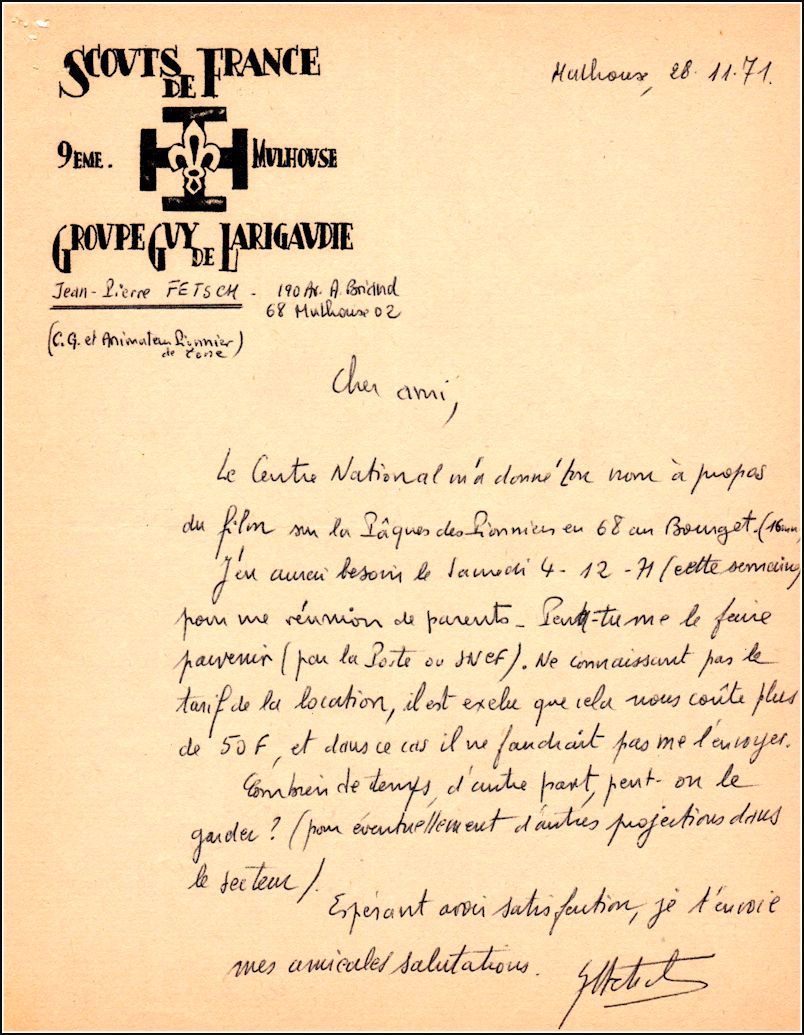 SCOUTS DE FRANCE
9EME. MULHOUSE
GROUPE GUY DE LARIGAUDIE
Mulhouse, 28.11.71.
Jean-Pierre FETSCH - 190 Av. A. Briand
68 Mulhouse 02
(C.G. et Animateur Pionnier
de zone)
Cher ami,
Le Centre National m'a donné ton nom à propos
du film sur la Pâques des Pionniers en 68 au Bourget. (16mm)
J'en aurai besoin le Samedi 4-12-71 (cette semaine)
pour une réunion de parents - Peux-tu me le faire
parvenir (par la Poste ou SNCF). Ne connaissant pas le
tarif de la location, il est exclu que cela nous coûte plus
de 50F, et dans ce cas il ne faudrait pas me l'envoyer.
Combien de temps, d'autre part, peut-on le
garder ? (pour éventuellement d'autres projections dans
le secteur).
Espérant avoir satisfaction, je t'envoie
mes amicales salutations.